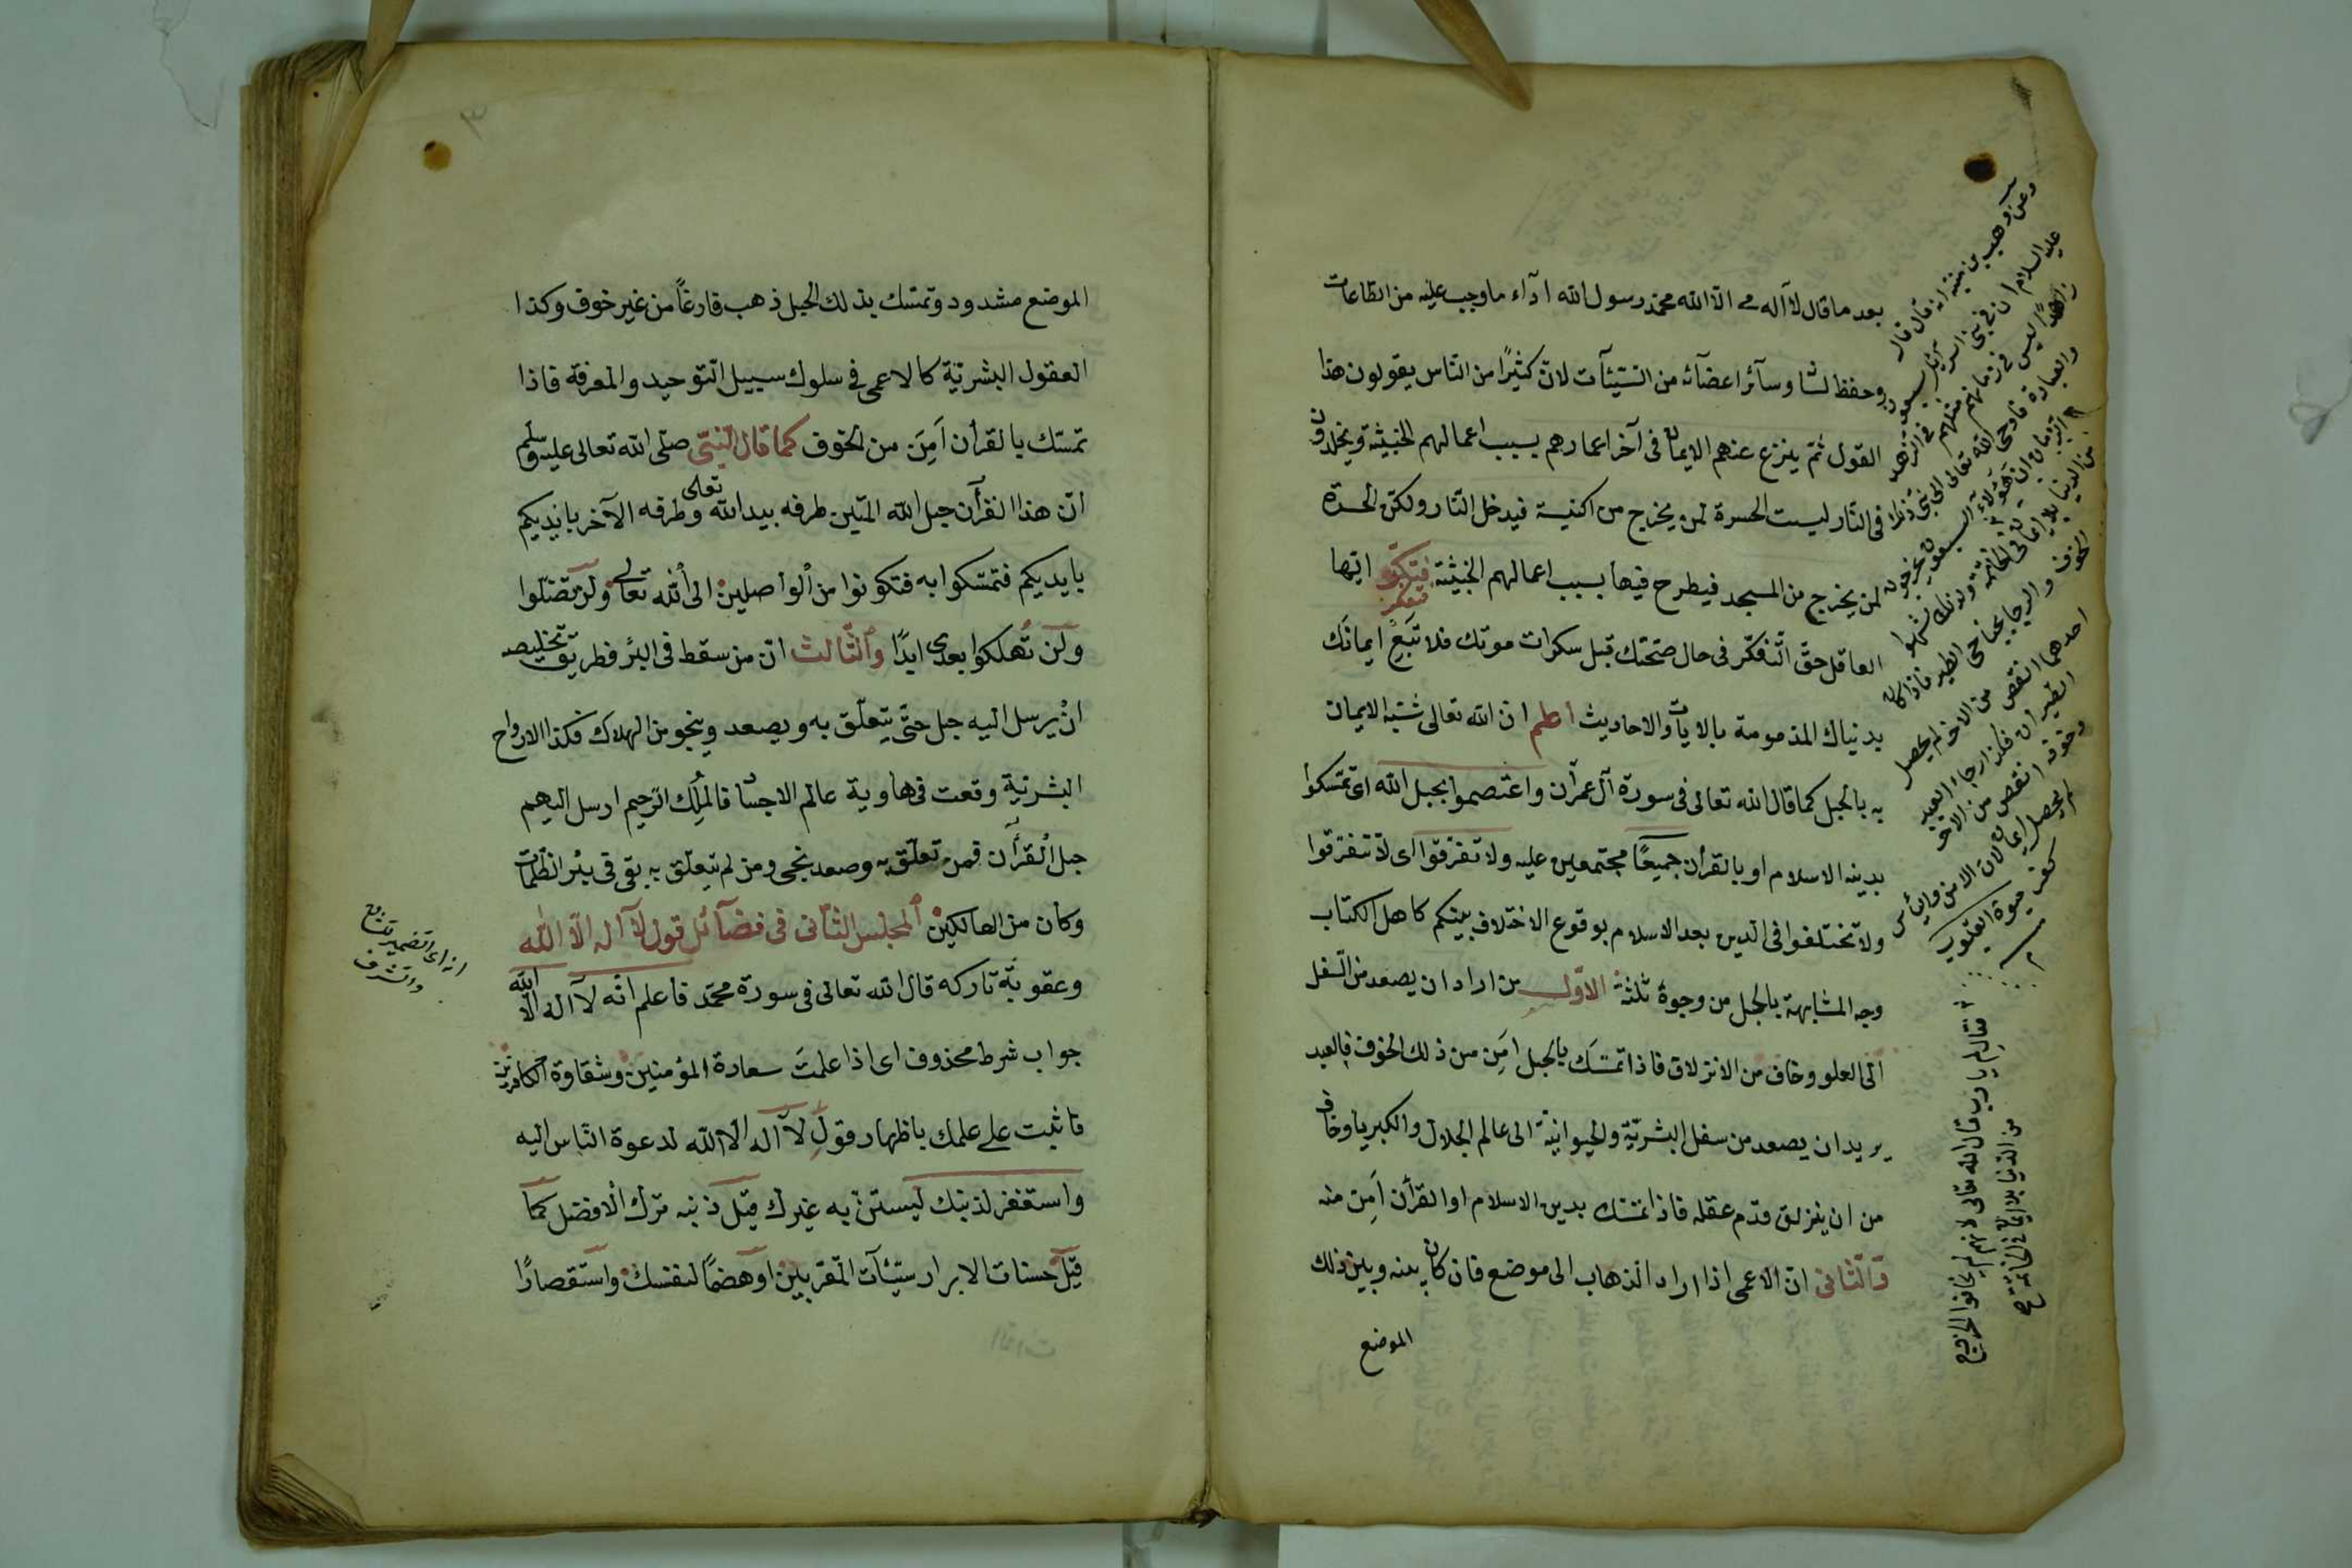 بعد ما قال لا آله الا الله محمد رسول الله اداء ما وجب عليه من الطاعات
وحفظ لسانه وسائر اعضائه من السيئات لان كثيرا من الناس يقولون هذا
القول ثم ينزع عنهم الايمان فى آخر اعمارهم بسبب اعمالهم الخبيثة ويخلدون
فى النار ليست الحسرة لمن يخرج من الكنيسة فيدخل النار ولكن الحسرة
لمن يخرج من المسجد فيطرح فيها بسبب اعمالهم الخبيثة ايها
العاقل حق التفكر فى حال صحتك قبل سكرات موتك فلا تبع ايمانك
بدنياك المذمومة بالايات والاحاديث اعلم ان الله تعالى شبه الايمان
به بالحبل كما قال الله تعالى فى سورة آل عمران واعتصموا بحبل الله اى تمسكوا
بدينه الاسلام او بالقرأن جميعا مجتمعين عليه ولا تفرقوا اى لا تتفرقوا
ولا تختلفوا فى الدين بعد الاسلام بوقوع الاختلاف بينكم كاهل الكتاب
وجه المشابهة بالحبل من وجوه ثلثة الاول من اراد ان يصعد من السفل
الى العلو وخاف من الانزلاق فاذا تمسك بالحبل امن من ذلك الخوف فالعبد
يريد ان يصعد من سفل البشرية والحيوانية الى عالم الجلال والكبريا وخاف
من ان ينزلق قدم عقله فاذا تمسك بدين الاسلام او القرأن امن منه
والثانى ان الاعمى اذا اراد الذهاب الى موضع فان كان بينه وبين ذلك
الموضع
وعن وهب بن منبه انه قال قال
عليه السلام ان فى بنى اسرائيل سبعون
زاهدا ليس فى زمانهم مثلهم فى الزهد
والعبادة فاوحى الله تعالى الى نبى ذلك
الزمان ان هؤلاء السبعون يخرجون
من الدنيا بلا ايمان
الخوف والرجا كجناحى الطير فاذا كان
احدهما انقص من الاخر لم يحصل
الطيران فكذا رجاء العبد
وخوفه انقص من الاخر
لم يحصل ايمان لان الامن واليأس
كفر حيوة القلوب
فقال لم يا رب قال الله تعالى لانهم لم يخافوا الخروج
من الدنيا بلا ايمان
٣
الموضع مشدود وتمسك بذلك الحبل ذهب فارغا من غير خوف وكذا
العقول البشرية كالاعمى فى سلوك سبيل التوحيد والمعرفة فاذا
تمسك بالقرأن امن من الخوف كما قال النبى صلى الله تعالى عليه وسلم
ان هذا القرأن حبل الله المتين طرفه بيد الله تعالى وطرفه الآخر بايديكم
بايديكم فتمسكوا به فتكونوا من الواصلين الى الله تعالى ولن تضلوا
ولن تهلكوا بعدى ابدا والثالث ان من سقط فى البئر فطريق تخليصه
ان يرسل اليه حبل حتى يتعلق به ويصعد وينجو من الهلاك فكذا الارواح
البشرية وقعت فى هاوية عالم الاجسام فالملك الرحيم ارسل اليهم
حبل القرأن فمن تعلق به وصعد نجى ومن لم يتعلق به بقى فى بئر الظلمات
وكان من الهالكين المجلس الثانى فى فضائل قول لا آله الا الله
وعقوبة تاركه قال الله تعالى فى سورة محمد فاعلم انه لا آله الا الله
جواب شرط محذوف اى اذا علمت سعادة المؤمنين وشقاوة الكافرين
فاثبت على علمك باظهار قول لا آله الا الله لدعوة الناس اليه
واستغفر لذنبك ليستن به غيرك قيل ذنبه ترك الافضل كما
قيل حسنات الابرار سيئآت المقربين او هضما لنفسك واستقصارا